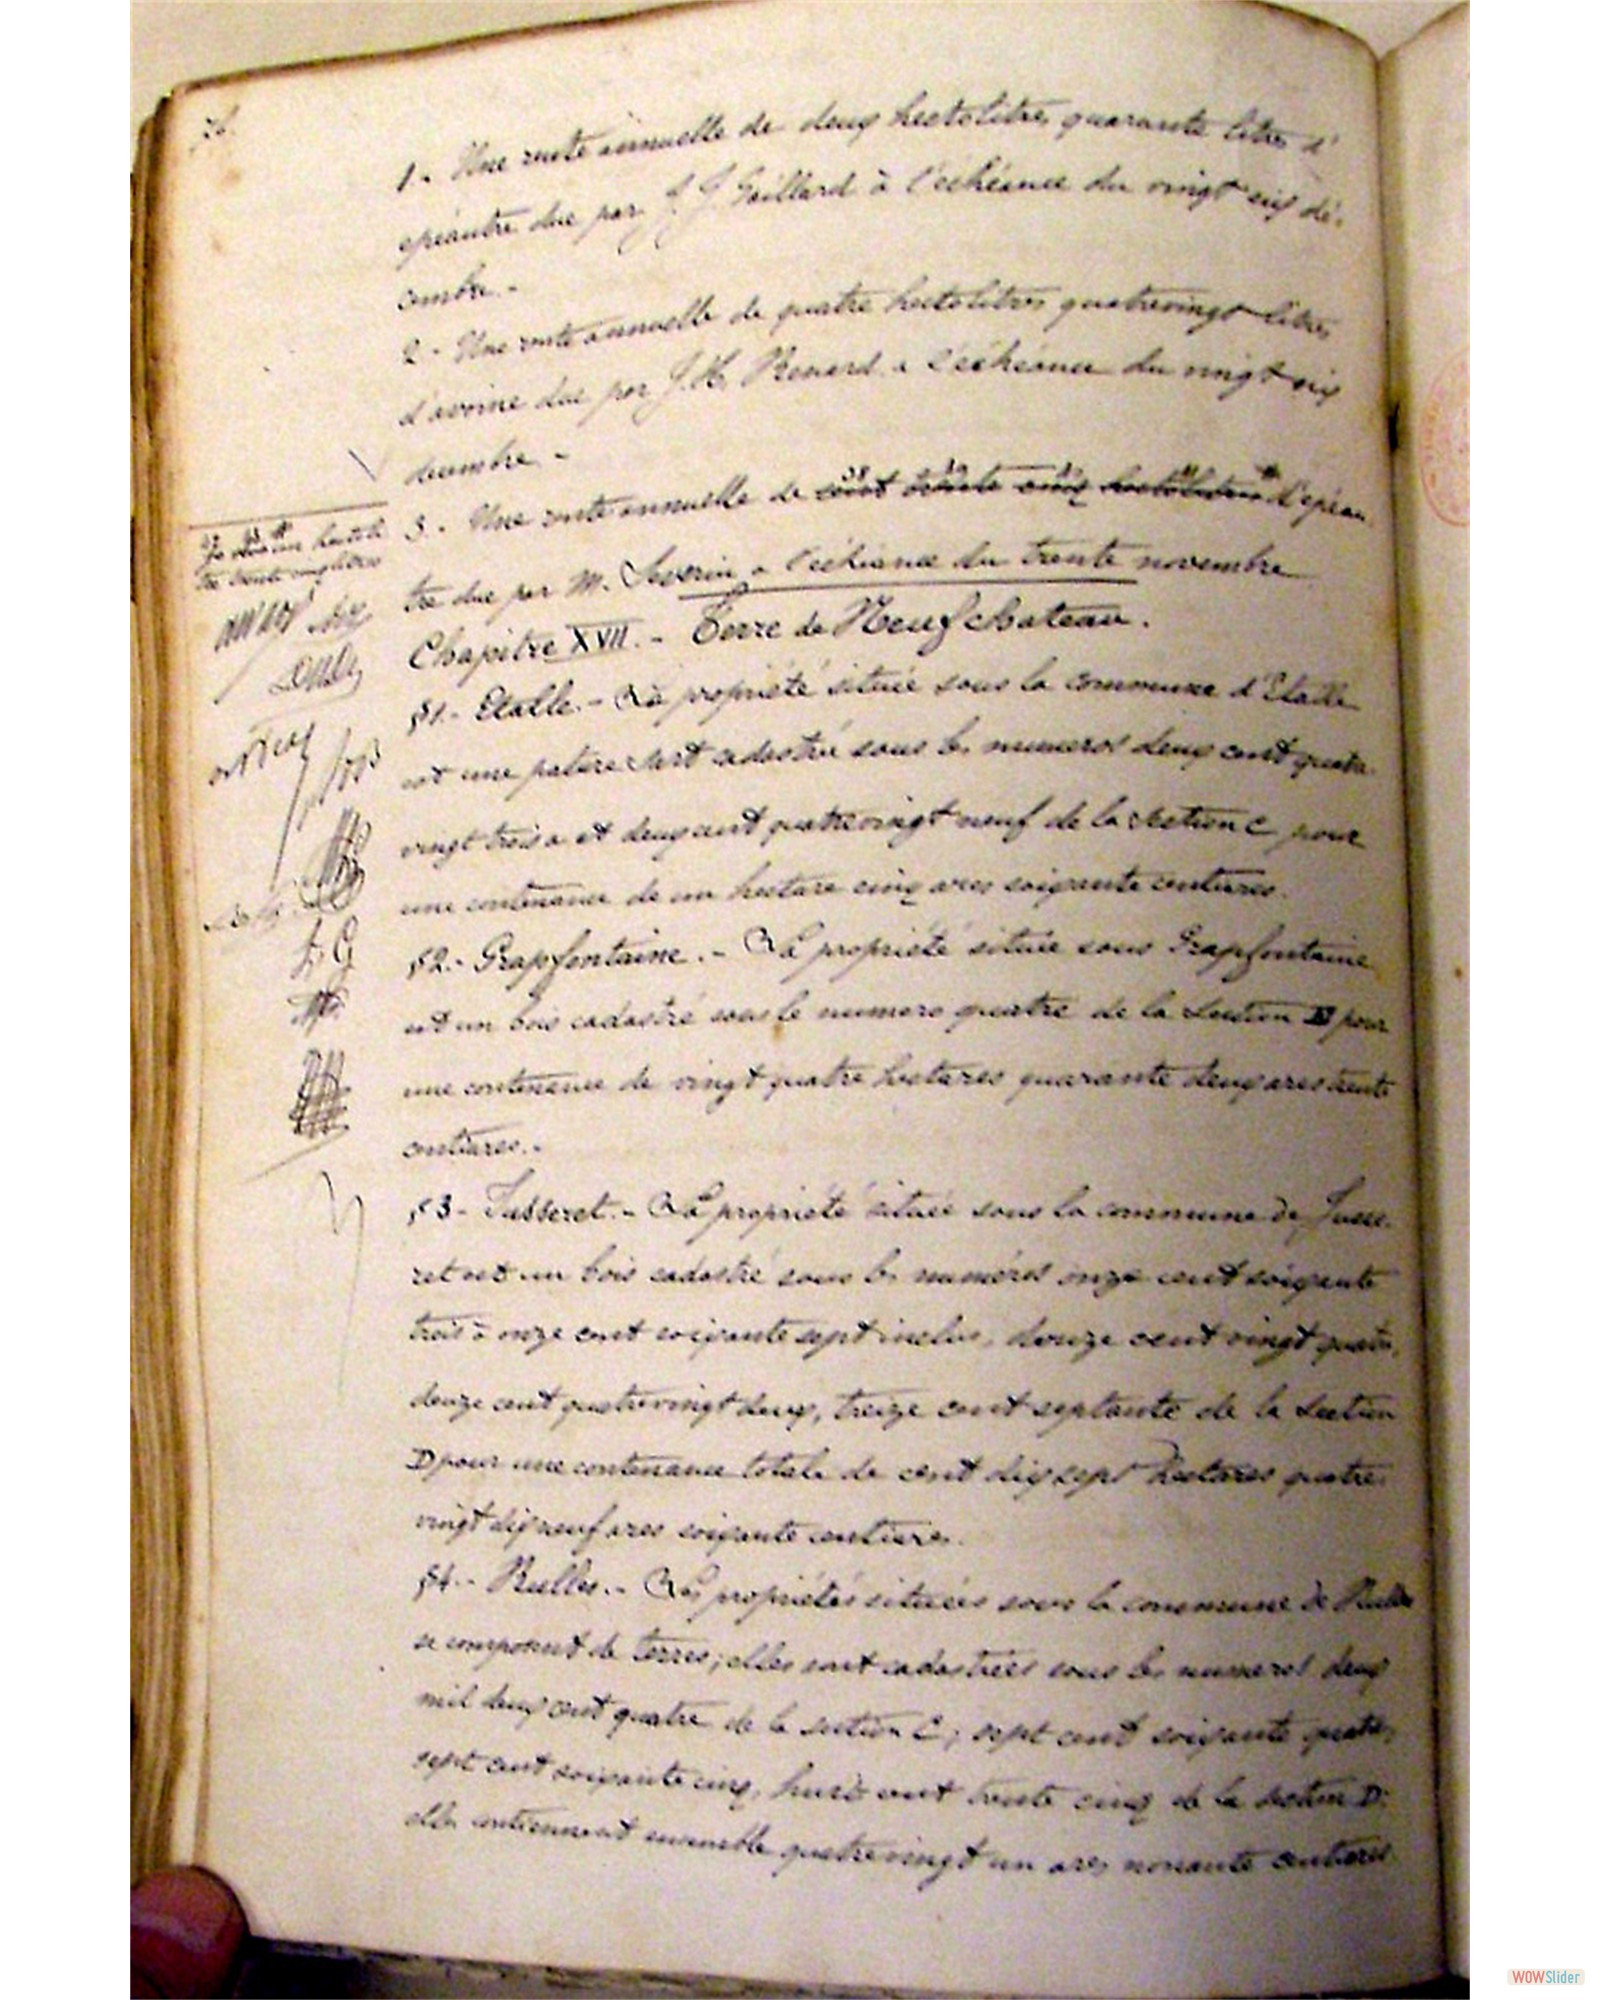 1.- Une rente annuelle de deux hectolitres quarante litres d'
épeautre due par J J Gaillard à l'échéance du vingt six dé-
cembre.-
2.- Une rente annuelle de quatre hectolitres quatrevingt litres
d'avoine due par J.H. Renard à l'échéance du vingt six
décembre.-
3.- Une rente annuelle de cent trente cinq hectolitres d'épeau
tre due par M. Severin à l'échéance du trente novembre
hectoli
tre trente cinq litres
Chapitre XVII.- Terre de Neufchateau.
§1.- Etalle.- La propriété située sous la commune d'Etalle
est une pature sart cadastrée sous les numéros deux cent quatre
vingt trois a et deux cent quatrevingt neuf de la section C pour
une contenance de un hectare cinq ares soixante centiares.
§2.- Grapfontaine.- La propriété située sous Grapfontaine
est un bois cadastré sous le numéro quatre de la Section B pour
une contenance de vingt quatre hectares quarante deux ares trente
centiares.-
§3- Jusseret.- La propriété située sous la commune de Jusse-
ret est un bois cadastré sous les numéros onze cent soixante
trois à onze cent soixante sept inclus, douze cent vingt quatre,
douze cent quatrevingt deux, treize cent septante de la Section
D pour une contenance totale de cent dix sept hectares quatre
vingt dix neuf ares soixante centiares.
§4.- Rulles.- Les propriétés situées sous la commune de Rulles
se composent de terres; elles sont cadastrées sous les numéros deux
mil deux cent quatre de la section C; sept cent soixante quatre,
sept cent soixante cinq, huit cent trente cinq de la section D;
elles contiennent ensemble quatrevingt un ares nonante centiares
WOWSlider